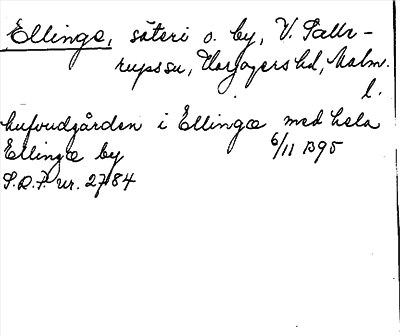 Ellinge, säteri o. by, V. Salle-
rupssn, Harjagers hd, Malm.
l.
hufvudgården i Ellinge med hela
Ellinge by 6/11 1395
S.D.F. nr. 2784